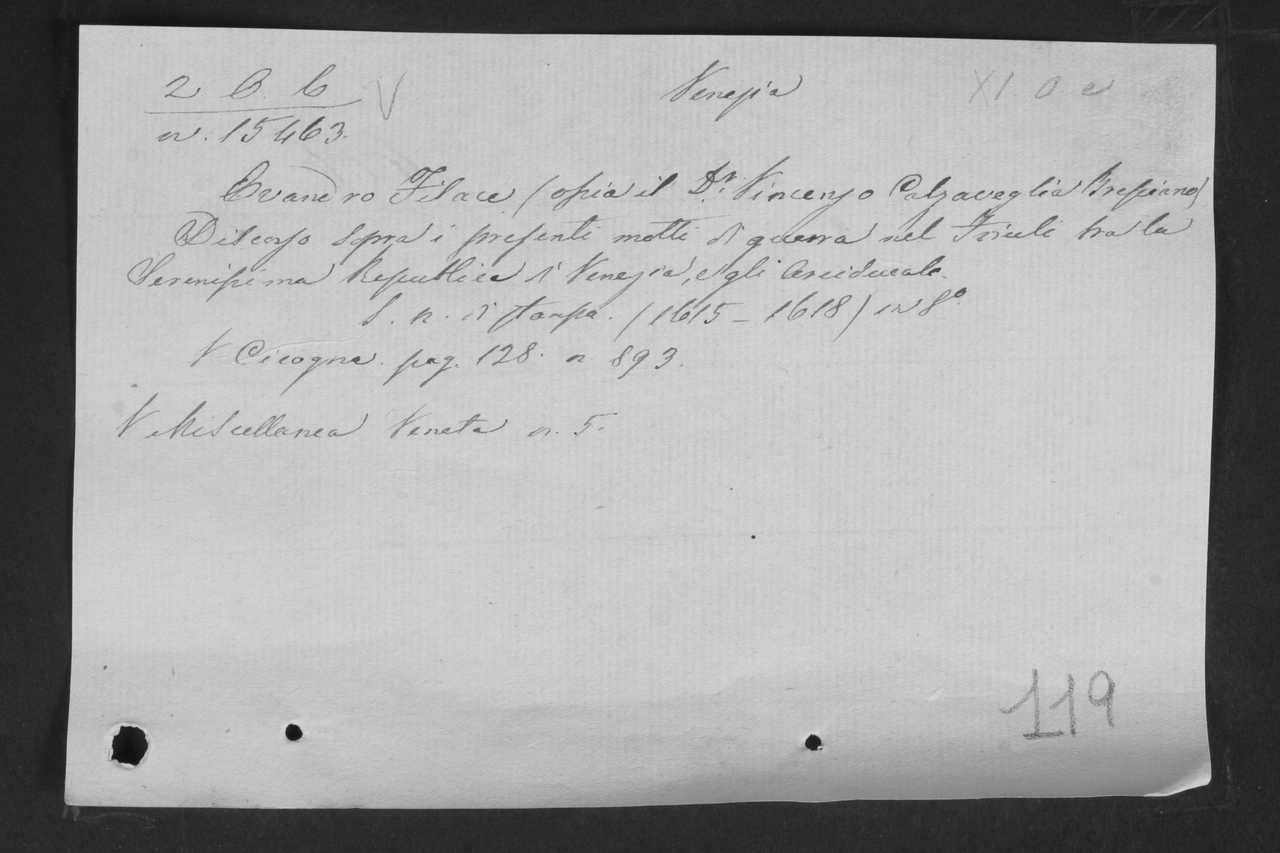 2 B. 6 V Venezia XI. O e
n. 15463.
Evandro Filace (ossia il Dr. Vincenzo Calzaveglia Bresciano)
Discorso sopra i presenti motti di guerra nel Friuli tra la
Serenissima Republica di Venezia, e gli Arciducali.
S. n. di stampa. (1615 - 1618) in 8°.
V Cicogna. pag. 128. n 893.
V Miscellanea Veneta n. 5.
119